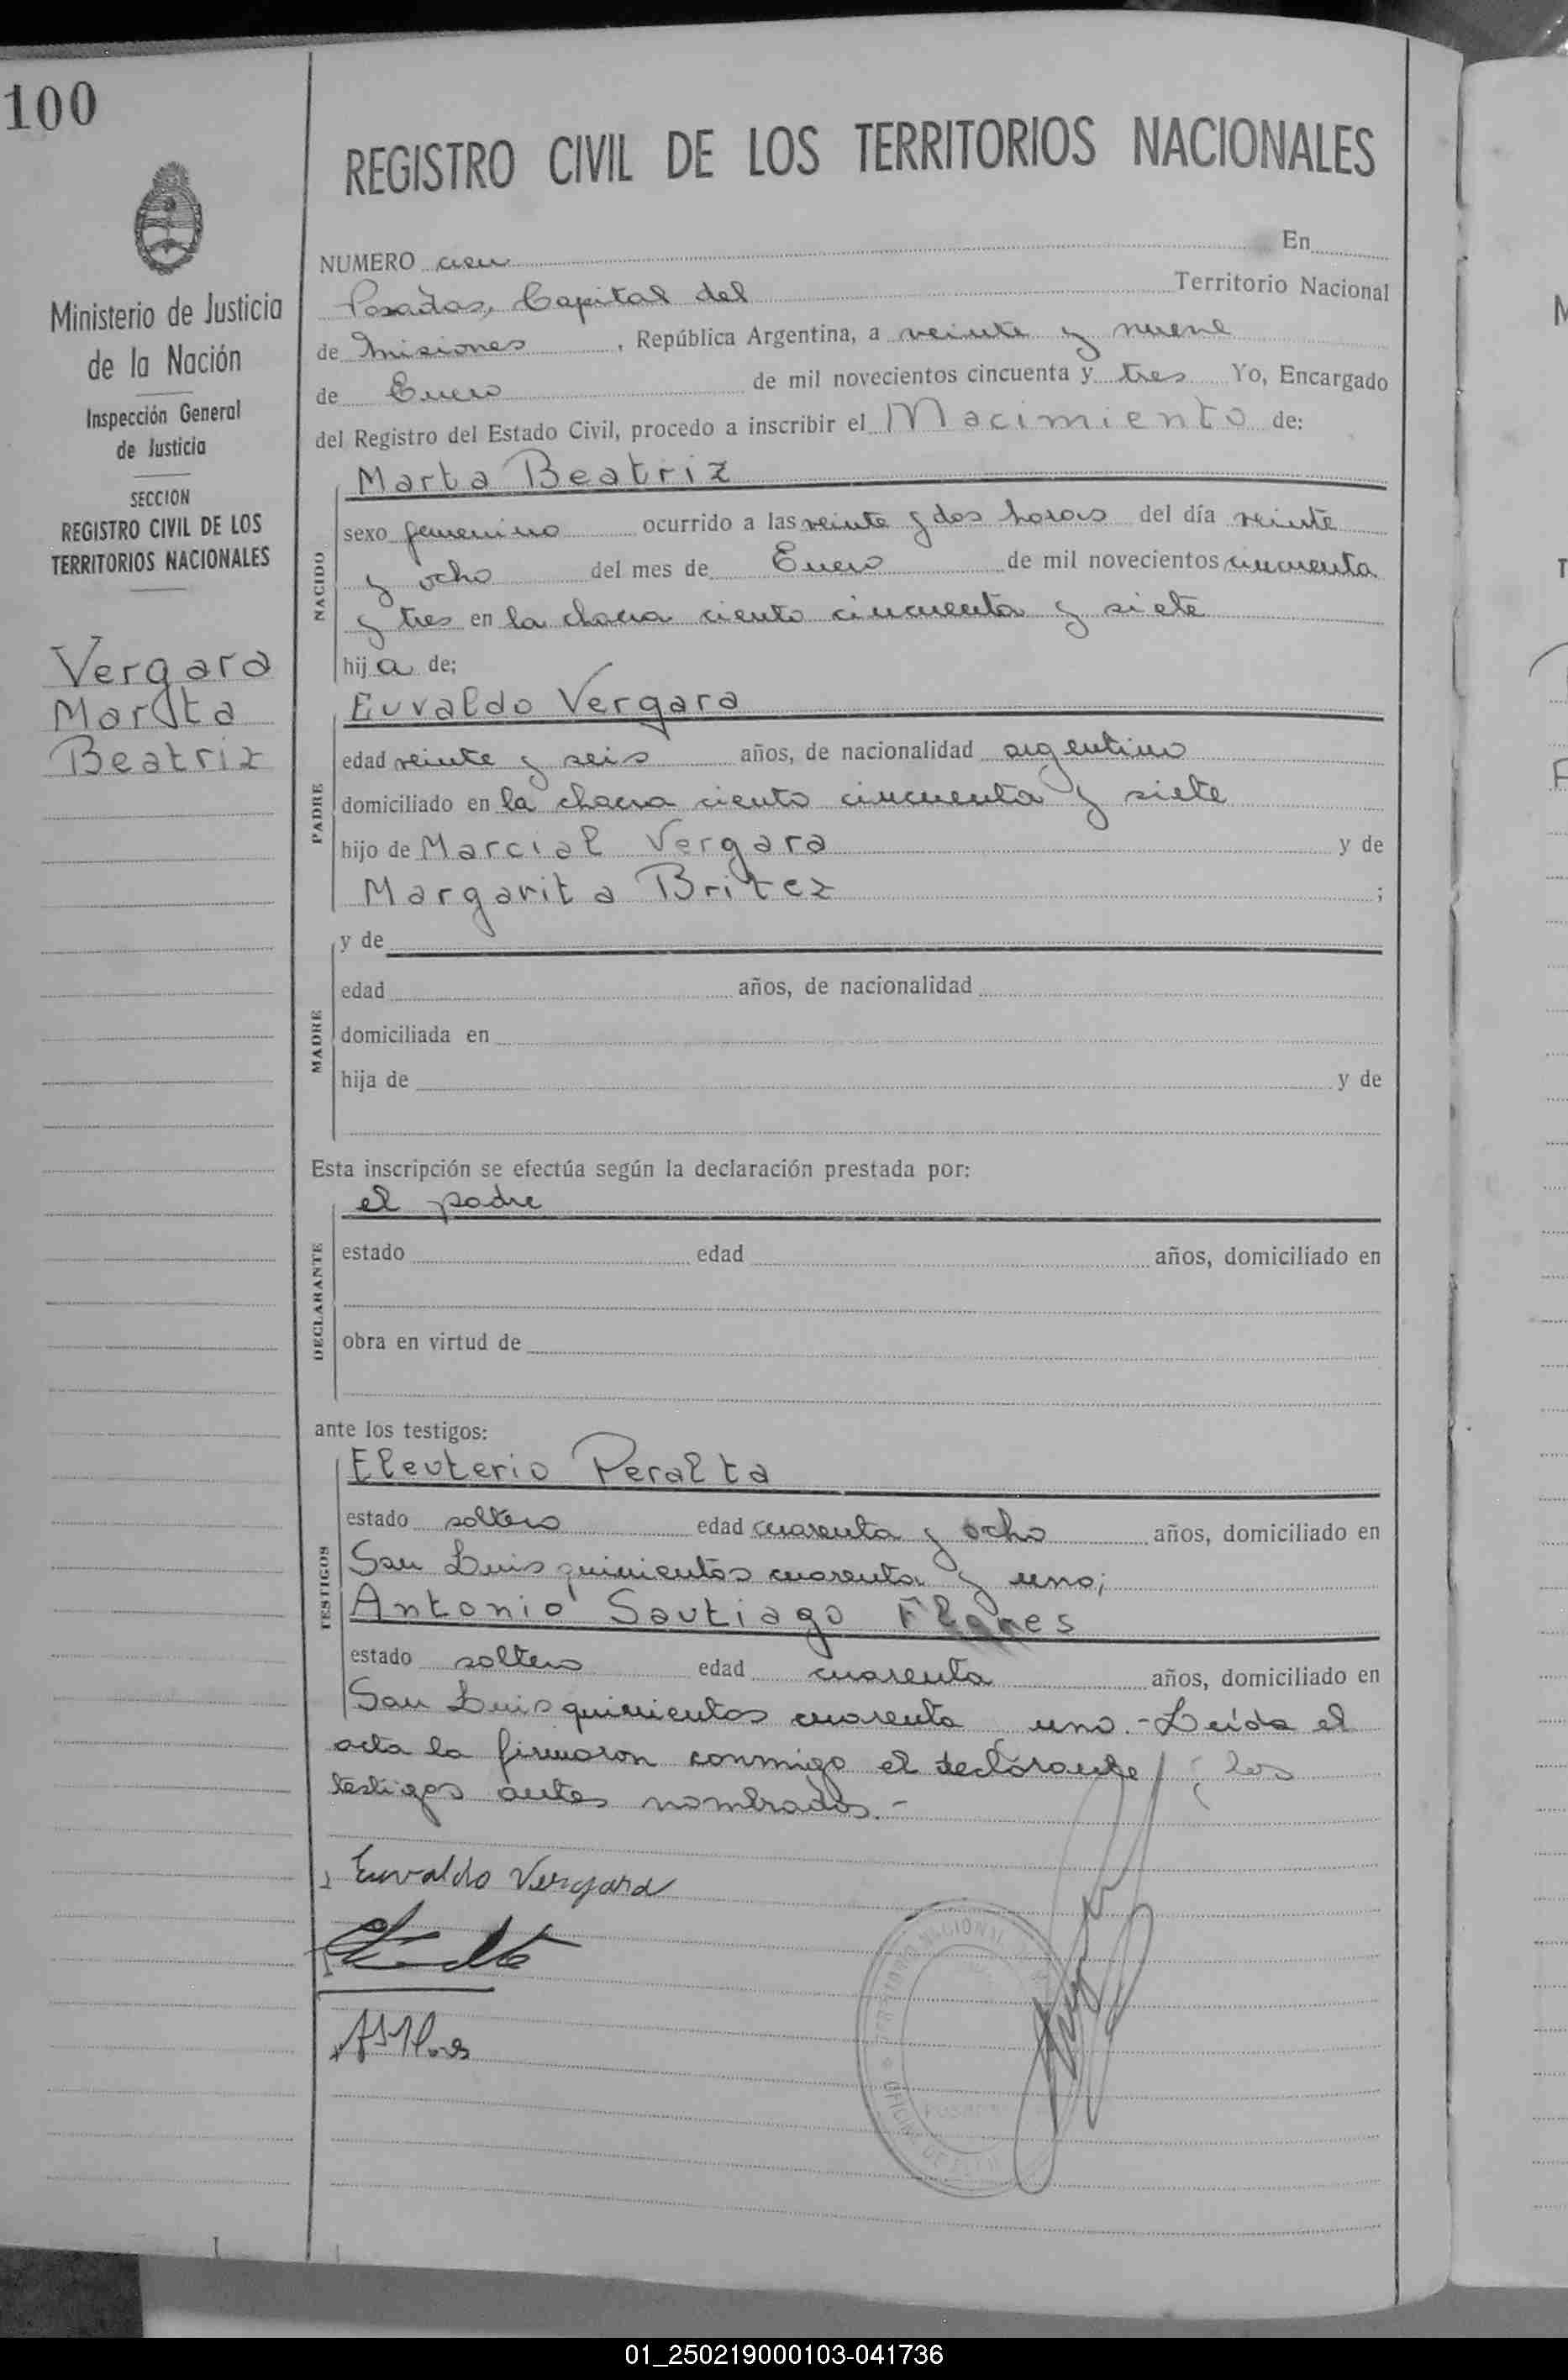 100
Ministerio de Justicia
de la Nación
Inspección General
de Justicia
SECCION
REGISTRO CIVIL DE LOS
TERRITORIOS NACIONALES
Vergara
Marta
Beatriz
REGISTRO CIVIL DE LOS TERRITORIOS NACIONALES
NUMERO cien En
Posadas, Capital del Territorio Nacional
de Misiones, República Argentina, a veinte y nueve
de Enero de mil novecientos cincuenta y tres Yo, Encargado
del Registro del Estado Civil, procedo a inscribir el Nacimiento de:
NACIDO
Marta Beatriz
sexo femenino ocurrido a las veinte y dos horas del día veinte
y ocho del mes de Enero de mil novecientos cincuenta
y tres en la chacra ciento cincuenta y siete
hija de;
PADRE
Euvaldo Vergara
edad veinte y seis años, de nacionalidad argentino
domiciliado en la chacra ciento cincuenta y siete
hijo de Marcial Vergara y de
Margarita Britez ;
MADRE
y de
edad años, de nacionalidad
domiciliada en
hija de y de
Esta inscripción se efectúa según la declaración prestada por:
DECLARANTE
el padre
estado edad años, domiciliado en
obra en virtud de
ante los testigos:
TESTIGOS
Eleuterio Peralta
estado soltero edad cuarenta y ocho años, domiciliado en
San Luis quinientos cuarenta y uno;
Antonio Santiago Flores
estado soltero edad cuarenta años, domiciliado en
San Luis quinientos cuarenta uno.- Leída el
acta la firmaron conmigo el declarante y los
testigos antes nombrados.-
Euvaldo Vergara
ASFlores
01_250219000103-041736